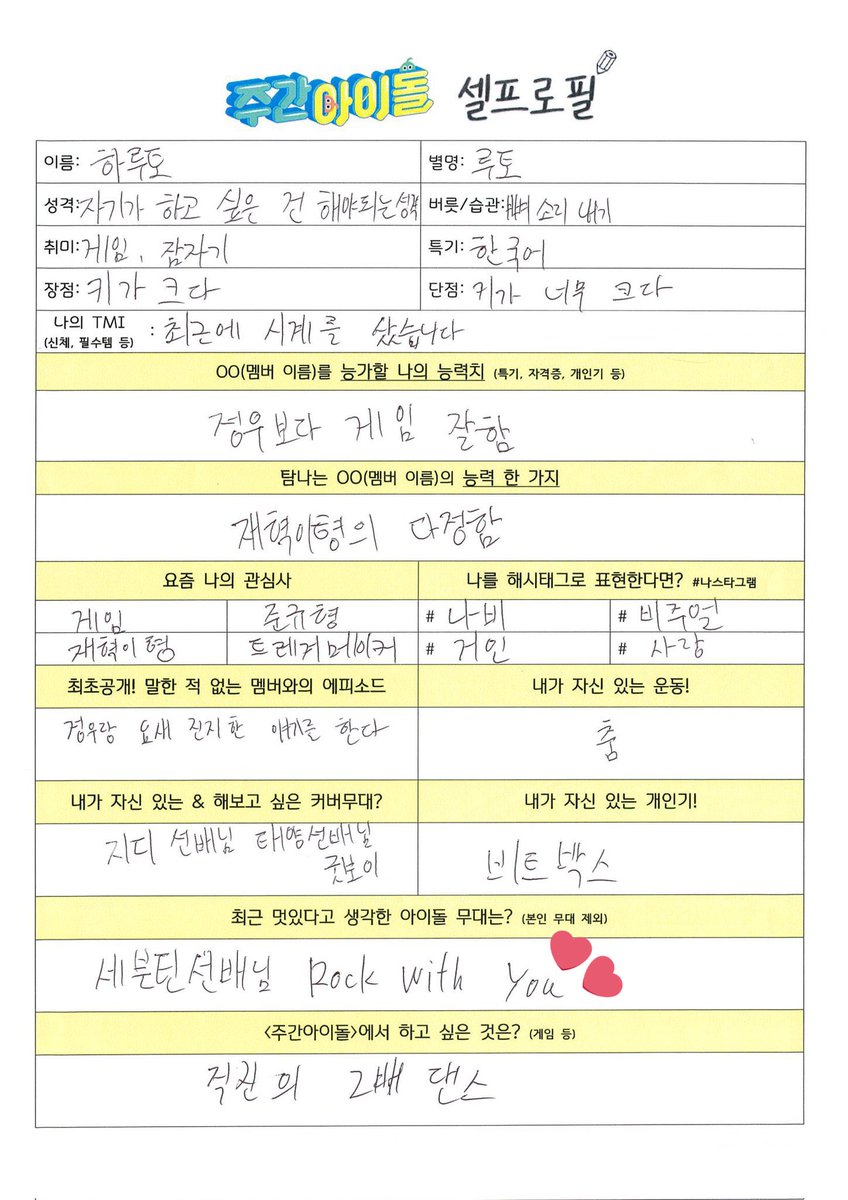 주간아이돌 셀프로필
이름: 하루토 별명: 루토
성격: 자기가 하고 싶은 건 해야되는성격 버릇/습관: 뼈 소리 내기
취미: 게임, 잠자기 특기: 한국어
장점: 키가 크다 단점: 키가 너무 크다
나의 TMI : 최근에 시계를 샀습니다
(신체, 필수템 등)
OO(멤버 이름)를 능가할 나의 능력치 (특기, 자격증, 개인기 등)
정우보다 게임 잘함
탐나는 OO(멤버 이름)의 능력 한 가지
재혁이형의 다정함
요즘 나의 관심사 나를 해시태그로 표현한다면? #나스타그램
게임 준규형 # 나비 # 비주얼
재혁이형 트레저메이커 # 거인 # 사랑
최초공개! 말한 적 없는 멤버와의 에피소드 내가 자신 있는 운동!
정우랑 요새 진지한 얘기를 한다 춤
내가 자신 있는 & 해보고 싶은 커버무대? 내가 자신 있는 개인기!
지디 선배님 태양선배님
굿보이 비트박스
최근 멋있다고 생각한 아이돌 무대는? (본인 무대 제외)
세븐틴선배님 Rock with you
<주간아이돌>에서 하고 싶은 것은? (게임 등)
직진의 2배 댄스